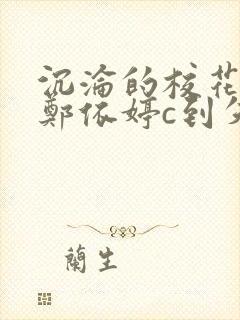 沉淪的校花
鄭依婷c到
蘭生